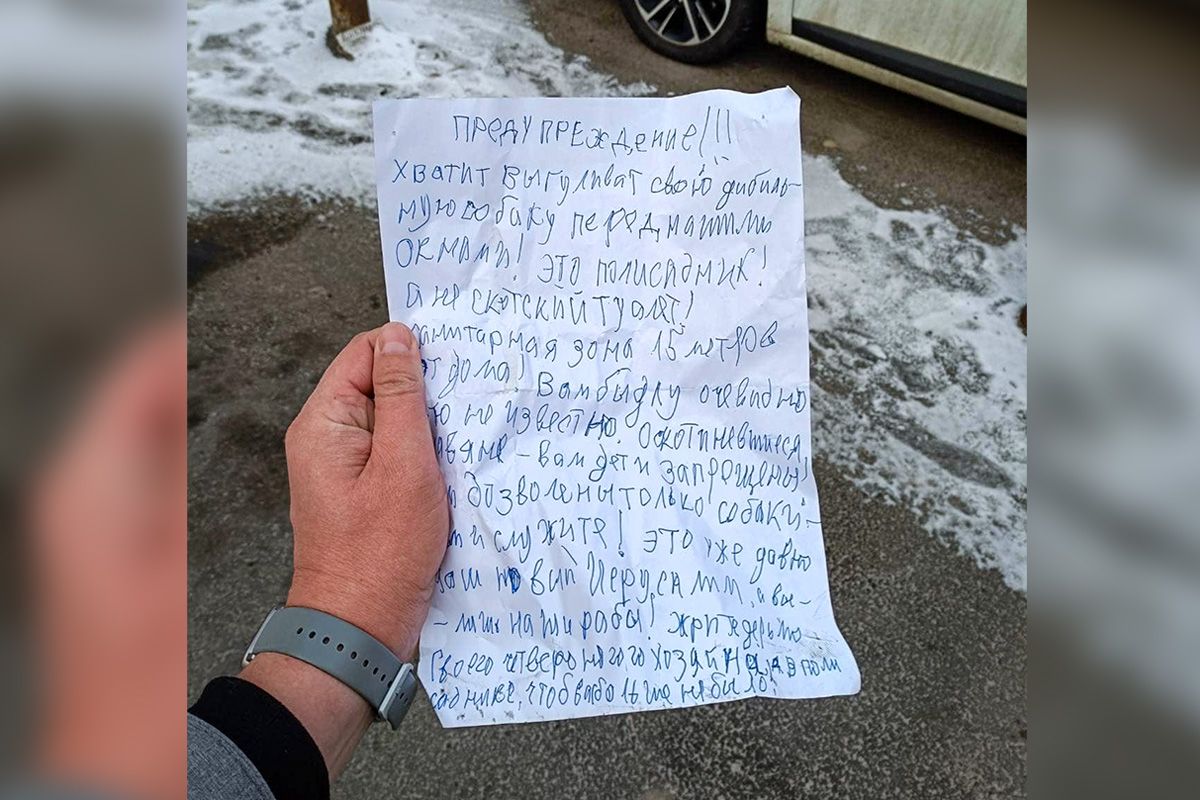 ПРЕДУПРЕЖДЕНИЕ!!!
ХВАТИТ ВЫГУЛИВАТ СВОЮ ДИБИЛЬ-
НУЮ СОБАКУ ПЕРЕД НАШИМИ
ОКНАМИ! ЭТО ПОЛИСАДНИК!
А НЕ СКОТСКИЙ ТУАЛЕТ!
санитарная зона 15 метров
от дома! Вам быдлу очевидно
не известно. Оскотиневшиеся
- вам дети запрещены,
дозволены только собаки -
им и служите! Это уже давно
наш новый Иерусалим, а вы -
- лишь наши рабы! Жрите дерьмо
своего четвероногого хозяйна, а в поли
саднике, чтоб вас больше не было!